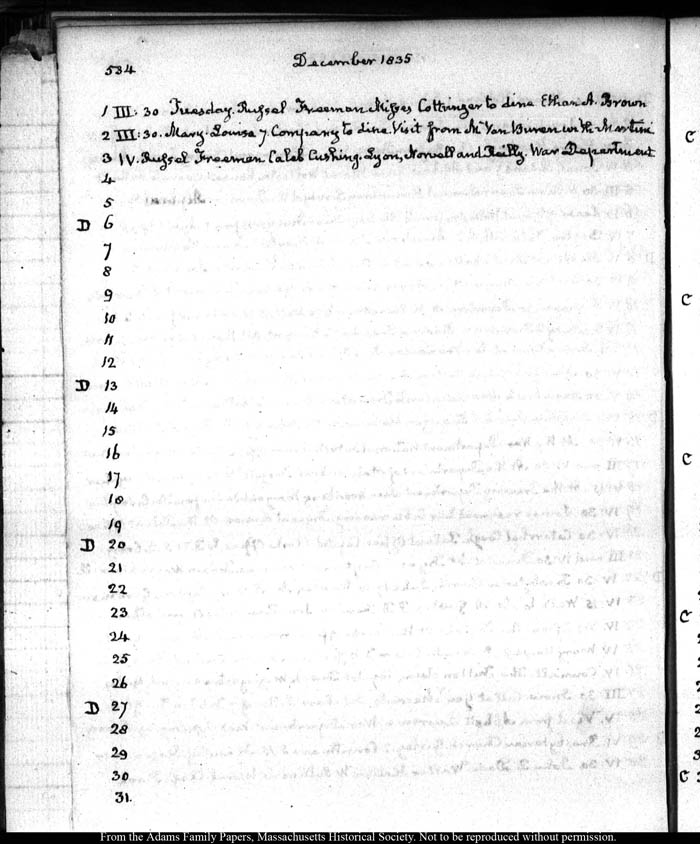 534
December 1835
1 III: 30 Tuesday. Russel Freeman Misses Cottringer to dine Ethan A. Brown
2 III: 30. Mary. Louisa 7 Company to dine. Visit from Mr Van Buren
3 IV. Russel Freeman Caleb Cushing. Lyon, Norvell and Reilly. War Department
4
5
D 6
7
8
9
10
11
12
D 13
14
15
16
17
18
19
D 20
21
22
23
24
25
26
D 27
28
29
30
31.
C
C
C
C
C
From the Adams Family Papers, Massachusetts Historical Society. Not to be reproduced without permission.